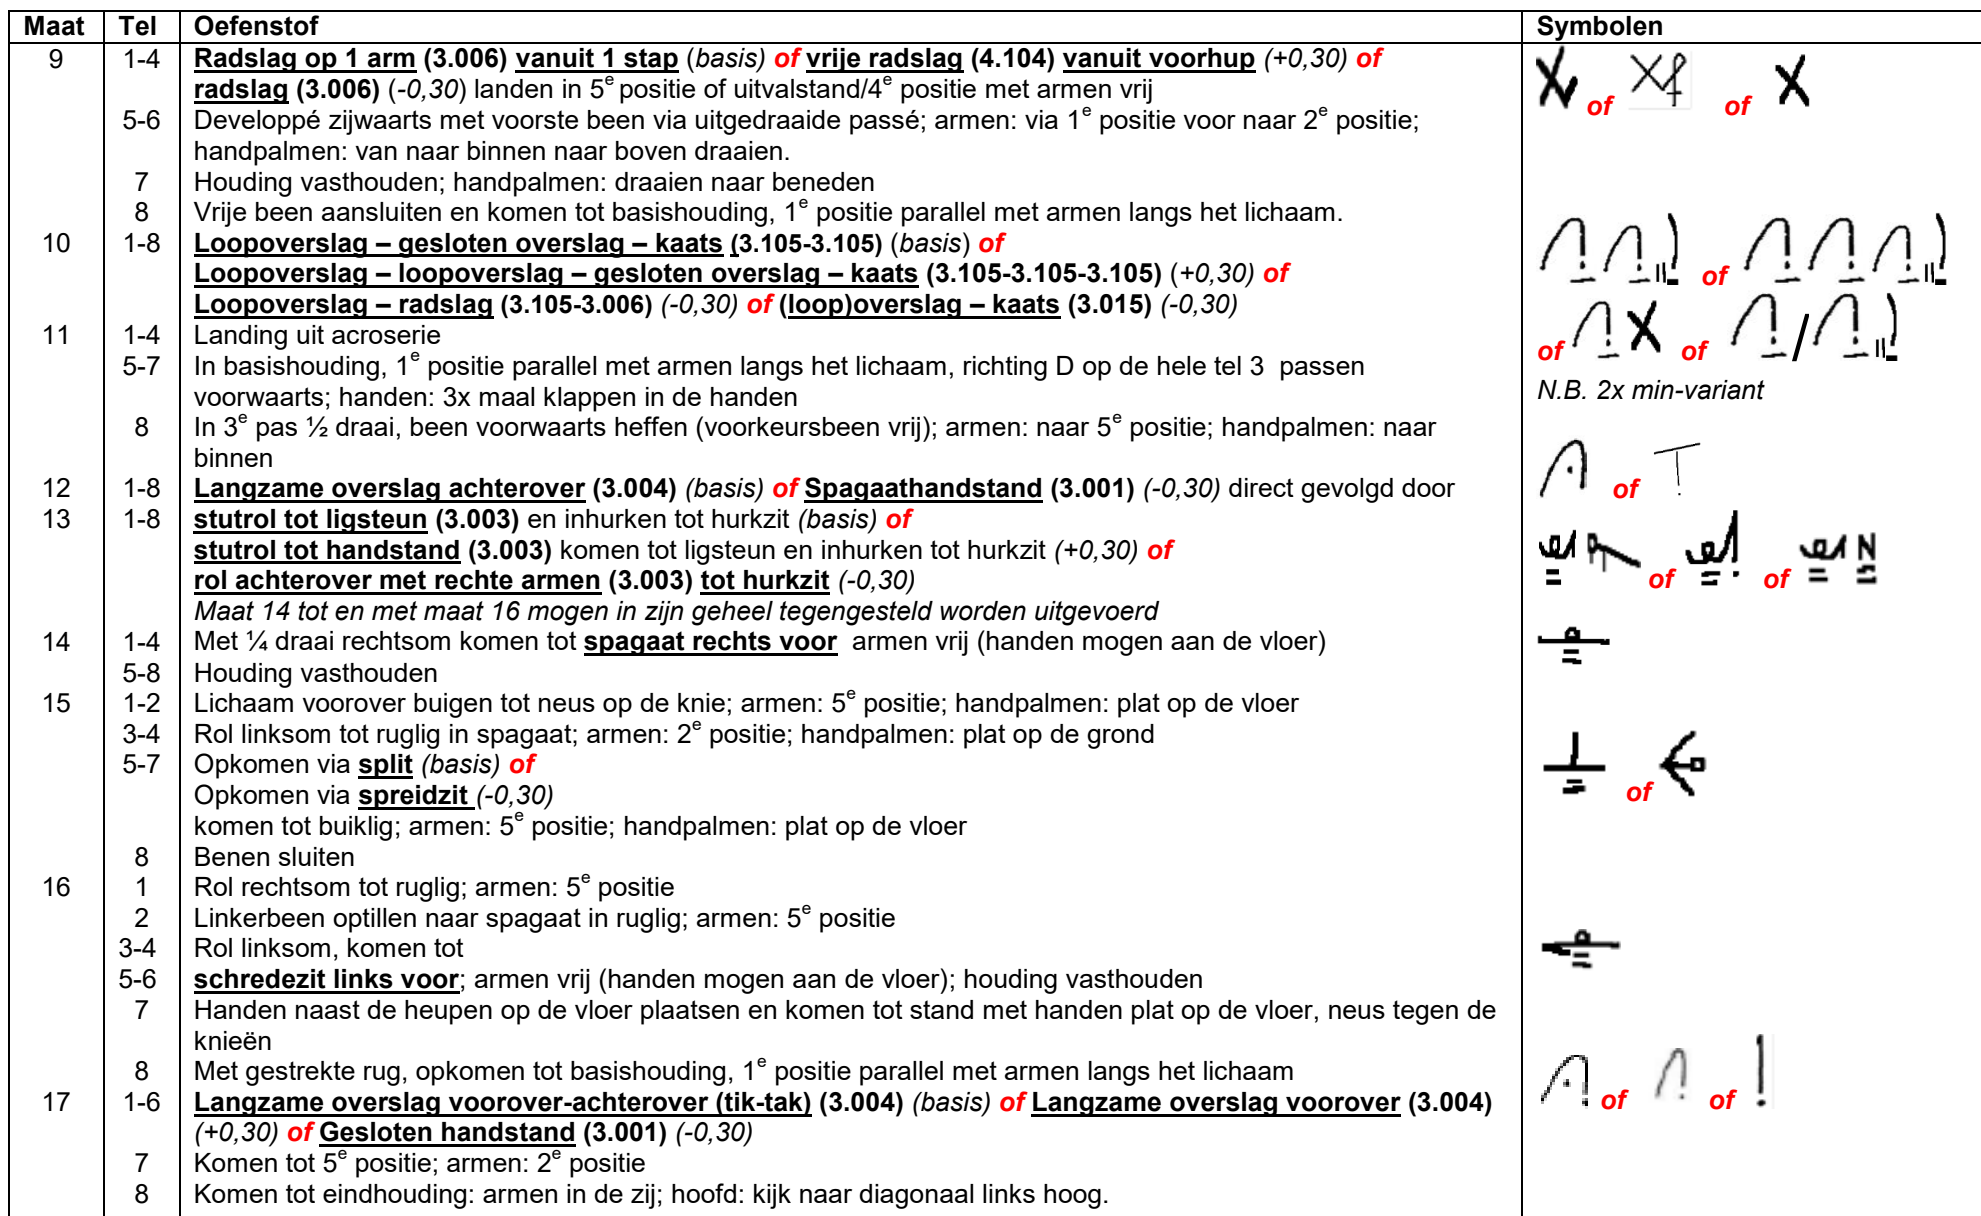 Maat Tel Oefenstof Symbolen
9 1-4 Radslag op 1 arm (3.006) vanuit 1 stap (basis) of vrije radslag (4.104) vanuit voorhup (+0,30) of
radslag (3.006) (-0,30) landen in 5e positie of uitvalstand/4e positie met armen vrij
of of
5-6 Developpé zijwaarts met voorste been via uitgedraaide passé; armen: via 1e positie voor naar 2e positie;
handpalmen: van naar binnen naar boven draaien.
7 Houding vasthouden; handpalmen: draaien naar beneden
8 Vrije been aansluiten en komen tot basishouding, 1e positie parallel met armen langs het lichaam.
10 1-8 Loopoverslag – gesloten overslag – kaats (3.105-3.105) (basis) of
Loopoverslag – loopoverslag – gesloten overslag – kaats (3.105-3.105-3.105) (+0,30) of
of
Loopoverslag – radslag (3.105-3.006) (-0,30) of (loop)overslag – kaats (3.015) (-0,30)
11 1-4 Landing uit acroserie
of of
5-7 In basishouding, 1e positie parallel met armen langs het lichaam, richting D op de hele tel 3 passen
voorwaarts; handen: 3x maal klappen in de handen
N.B. 2x min-variant
8 In 3e pas ½ draai, been voorwaarts heffen (voorkeursbeen vrij); armen: naar 5e positie; handpalmen: naar
binnen
12 1-8 Langzame overslag achterover (3.004) (basis) of Spagaathandstand (3.001) (-0,30) direct gevolgd door
of
13 1-8 stutrol tot ligsteun (3.003) en inhurken tot hurkzit (basis) of
stutrol tot handstand (3.003) komen tot ligsteun en inhurken tot hurkzit (+0,30) of
rol achterover met rechte armen (3.003) tot hurkzit (-0,30)
of of
Maat 14 tot en met maat 16 mogen in zijn geheel tegengesteld worden uitgevoerd
14 1-4 Met ¼ draai rechtsom komen tot spagaat rechts voor armen vrij (handen mogen aan de vloer)
5-8 Houding vasthouden
15 1-2 Lichaam voorover buigen tot neus op de knie; armen: 5e positie; handpalmen: plat op de vloer
3-4 Rol linksom tot ruglig in spagaat; armen: 2e positie; handpalmen: plat op de grond
5-7 Opkomen via split (basis) of
Opkomen via spreidzit (-0,30)
of
komen tot buiklig; armen: 5e positie; handpalmen: plat op de vloer
8 Benen sluiten
16 1 Rol rechtsom tot ruglig; armen: 5e positie
2 Linkerbeen optillen naar spagaat in ruglig; armen: 5e positie
3-4 Rol linksom, komen tot
5-6 schredezit links voor; armen vrij (handen mogen aan de vloer); houding vasthouden
7 Handen naast de heupen op de vloer plaatsen en komen tot stand met handen plat op de vloer, neus tegen de
knieën
8 Met gestrekte rug, opkomen tot basishouding, 1e positie parallel met armen langs het lichaam
17 1-6 Langzame overslag voorover-achterover (tik-tak) (3.004) (basis) of Langzame overslag voorover (3.004)
of of
(+0,30) of Gesloten handstand (3.001) (-0,30)
7 Komen tot 5e positie; armen: 2e positie
8 Komen tot eindhouding: armen in de zij; hoofd: kijk naar diagonaal links hoog.